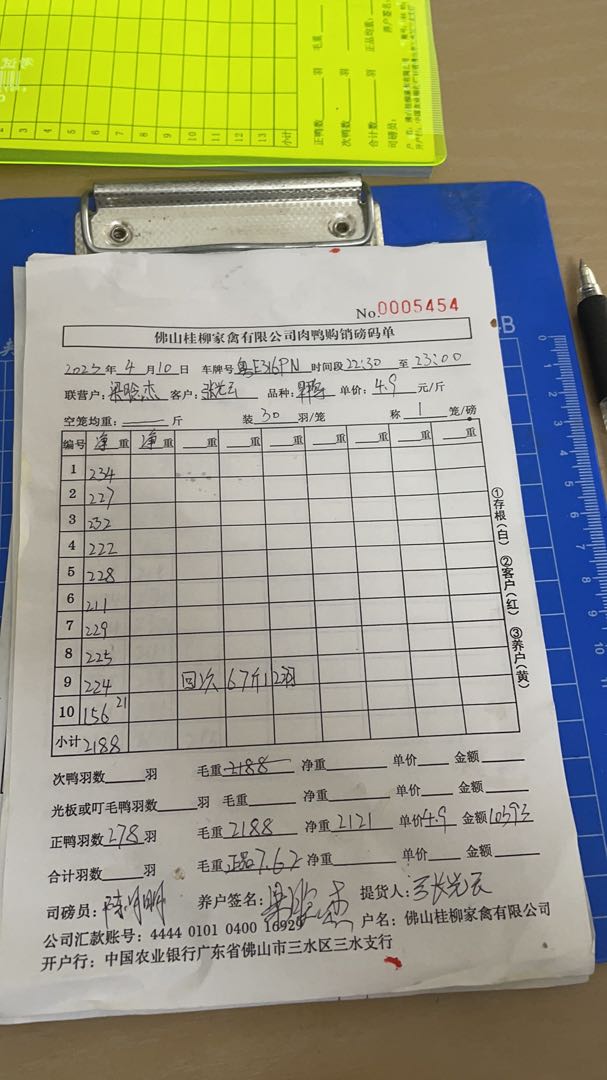 2 3 4 5 6 7 8 9 10 11 12 13 小计
正鸭数 羽 毛重
次鸭数 羽 毛重
合计数 羽 正品均重:
司磅员: 养户签名:
No.0005454
佛山桂柳家禽有限公司肉鸭购销磅码单
2023年4月10日 车牌号 粤E316PN 时间段22:30 至 23:00
联营户: 客户: 张光云 品种: 单价: 4.9 元/斤
空笼均重: 斤 装 30 羽/笼 称 1 笼/磅
编号 净重 净重 重 重 重 重 重 重 重
1 234
2 227
3 232
4 222
5 228
6 211
7 229
8 225
9 224 回次 67斤12羽
10 156 21
小计 2188
①存根(白) ②客户(红) ③养户(黄)
次鸭羽数 羽 毛重 2188 净重 单价 金额
光板或叮毛鸭羽数 羽 毛重 净重 单价 金额
正鸭羽数 278 羽 毛重 2188 净重 2121 单价 4.9 金额 10393
合计羽数 羽 毛重 正品7.62 净重 单价 金额
司磅员: 养户签名: 提货人:
公司汇款账号: 4444 0101 0400 16929 户名: 佛山桂柳家禽有限公司
开户行: 中国农业银行广东省佛山市三水区三水支行